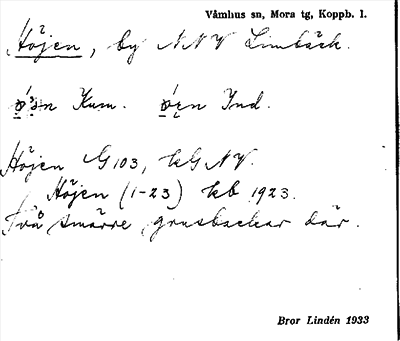 Våmhus sn, Mora tg, Koppb. l.
Höjen, by NNV Limbäck.
Kum. Ind.
Höjen G103, kG NV.
Höjen (1-23) kb 1923.
Två smärre grusbackar där.
Bror Lindén 1933